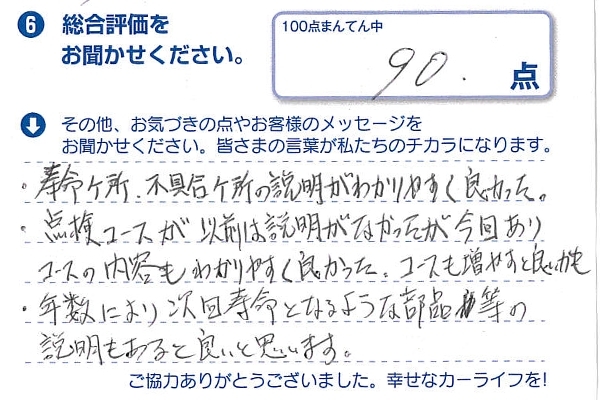 6 総合評価を
お聞かせください。
100点まんてん中
90. 点
その他、お気づきの点やお客様のメッセージを
お聞かせください。皆さまの言葉が私たちのチカラになります。
・寿命ケ所、不具合ケ所の説明がわかりやすく良かった。
・点検コースが以前は説明がなかったが今回あり
コースの内容もわかりやすく良かった。コースも増やすと良いかも
・年数により次回寿命となるような部品等の
説明もあると良いと思います。
ご協力ありがとうございました。幸せなカーライフを!